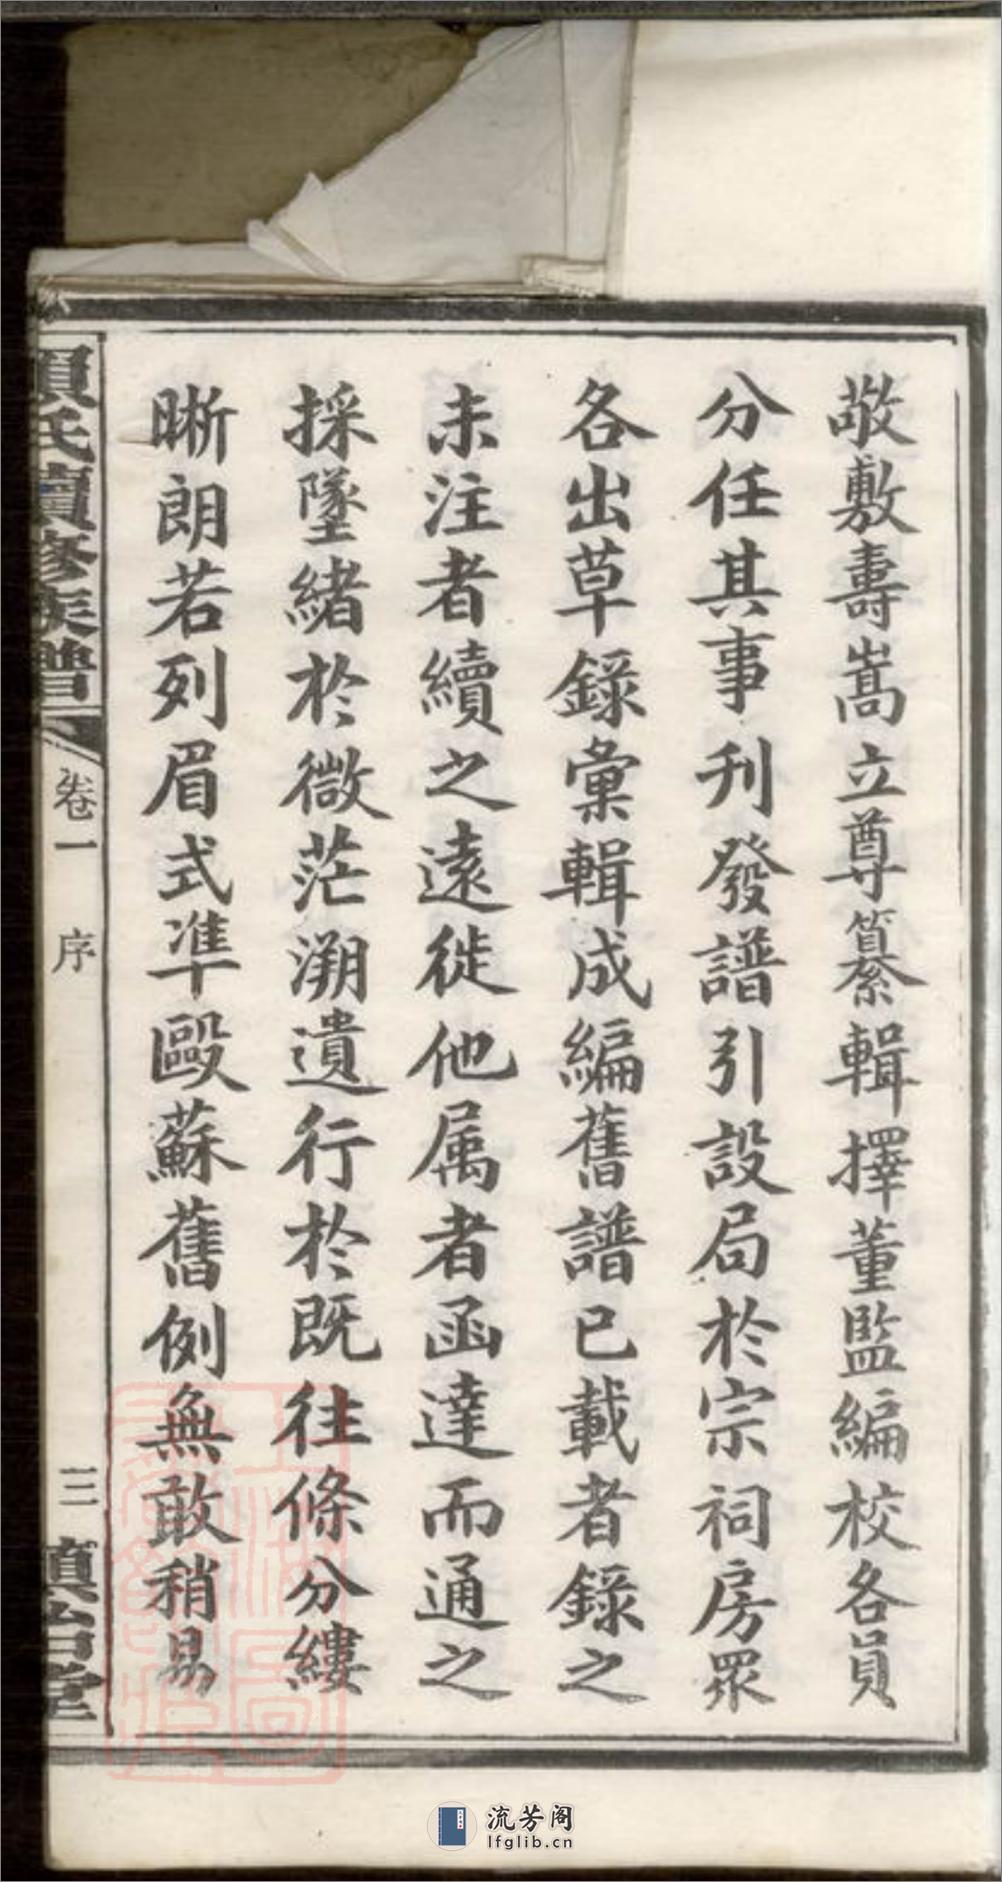 敬敷壽嵩立尊纂輯擇董監編校各員
分任其事刋發譜引設局於宗祠房眾
各出草錄彙輯成編舊譜已載者錄之
未注者續之遠徙他属者函達而通之
採墜緒於微茫溯遺行於既往條分縷
晰朗若列眉式準歐蘇舊例無敢稍易
氏續修族譜
卷一 序
三
堂
流芳阁
lfglib.cn